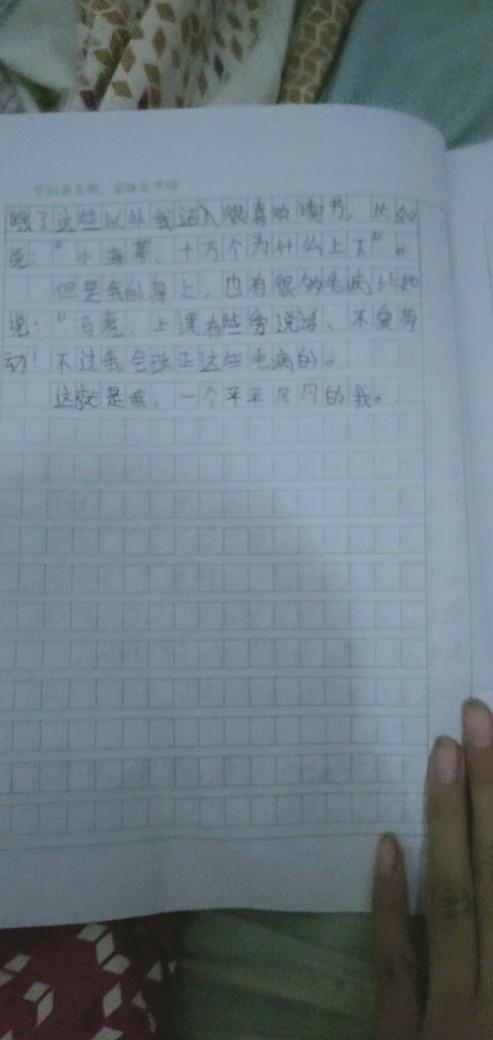 了这些以外我还人很喜欢读书。比如
说:"小海蒂、十万个为什么上下"。
但是我的身上,也有很多毛病比如
说:"马虎,上课有些旁说话、不爱劳
动!不过我会改正这些毛病的。
这就是我,一个平平凡凡的我。